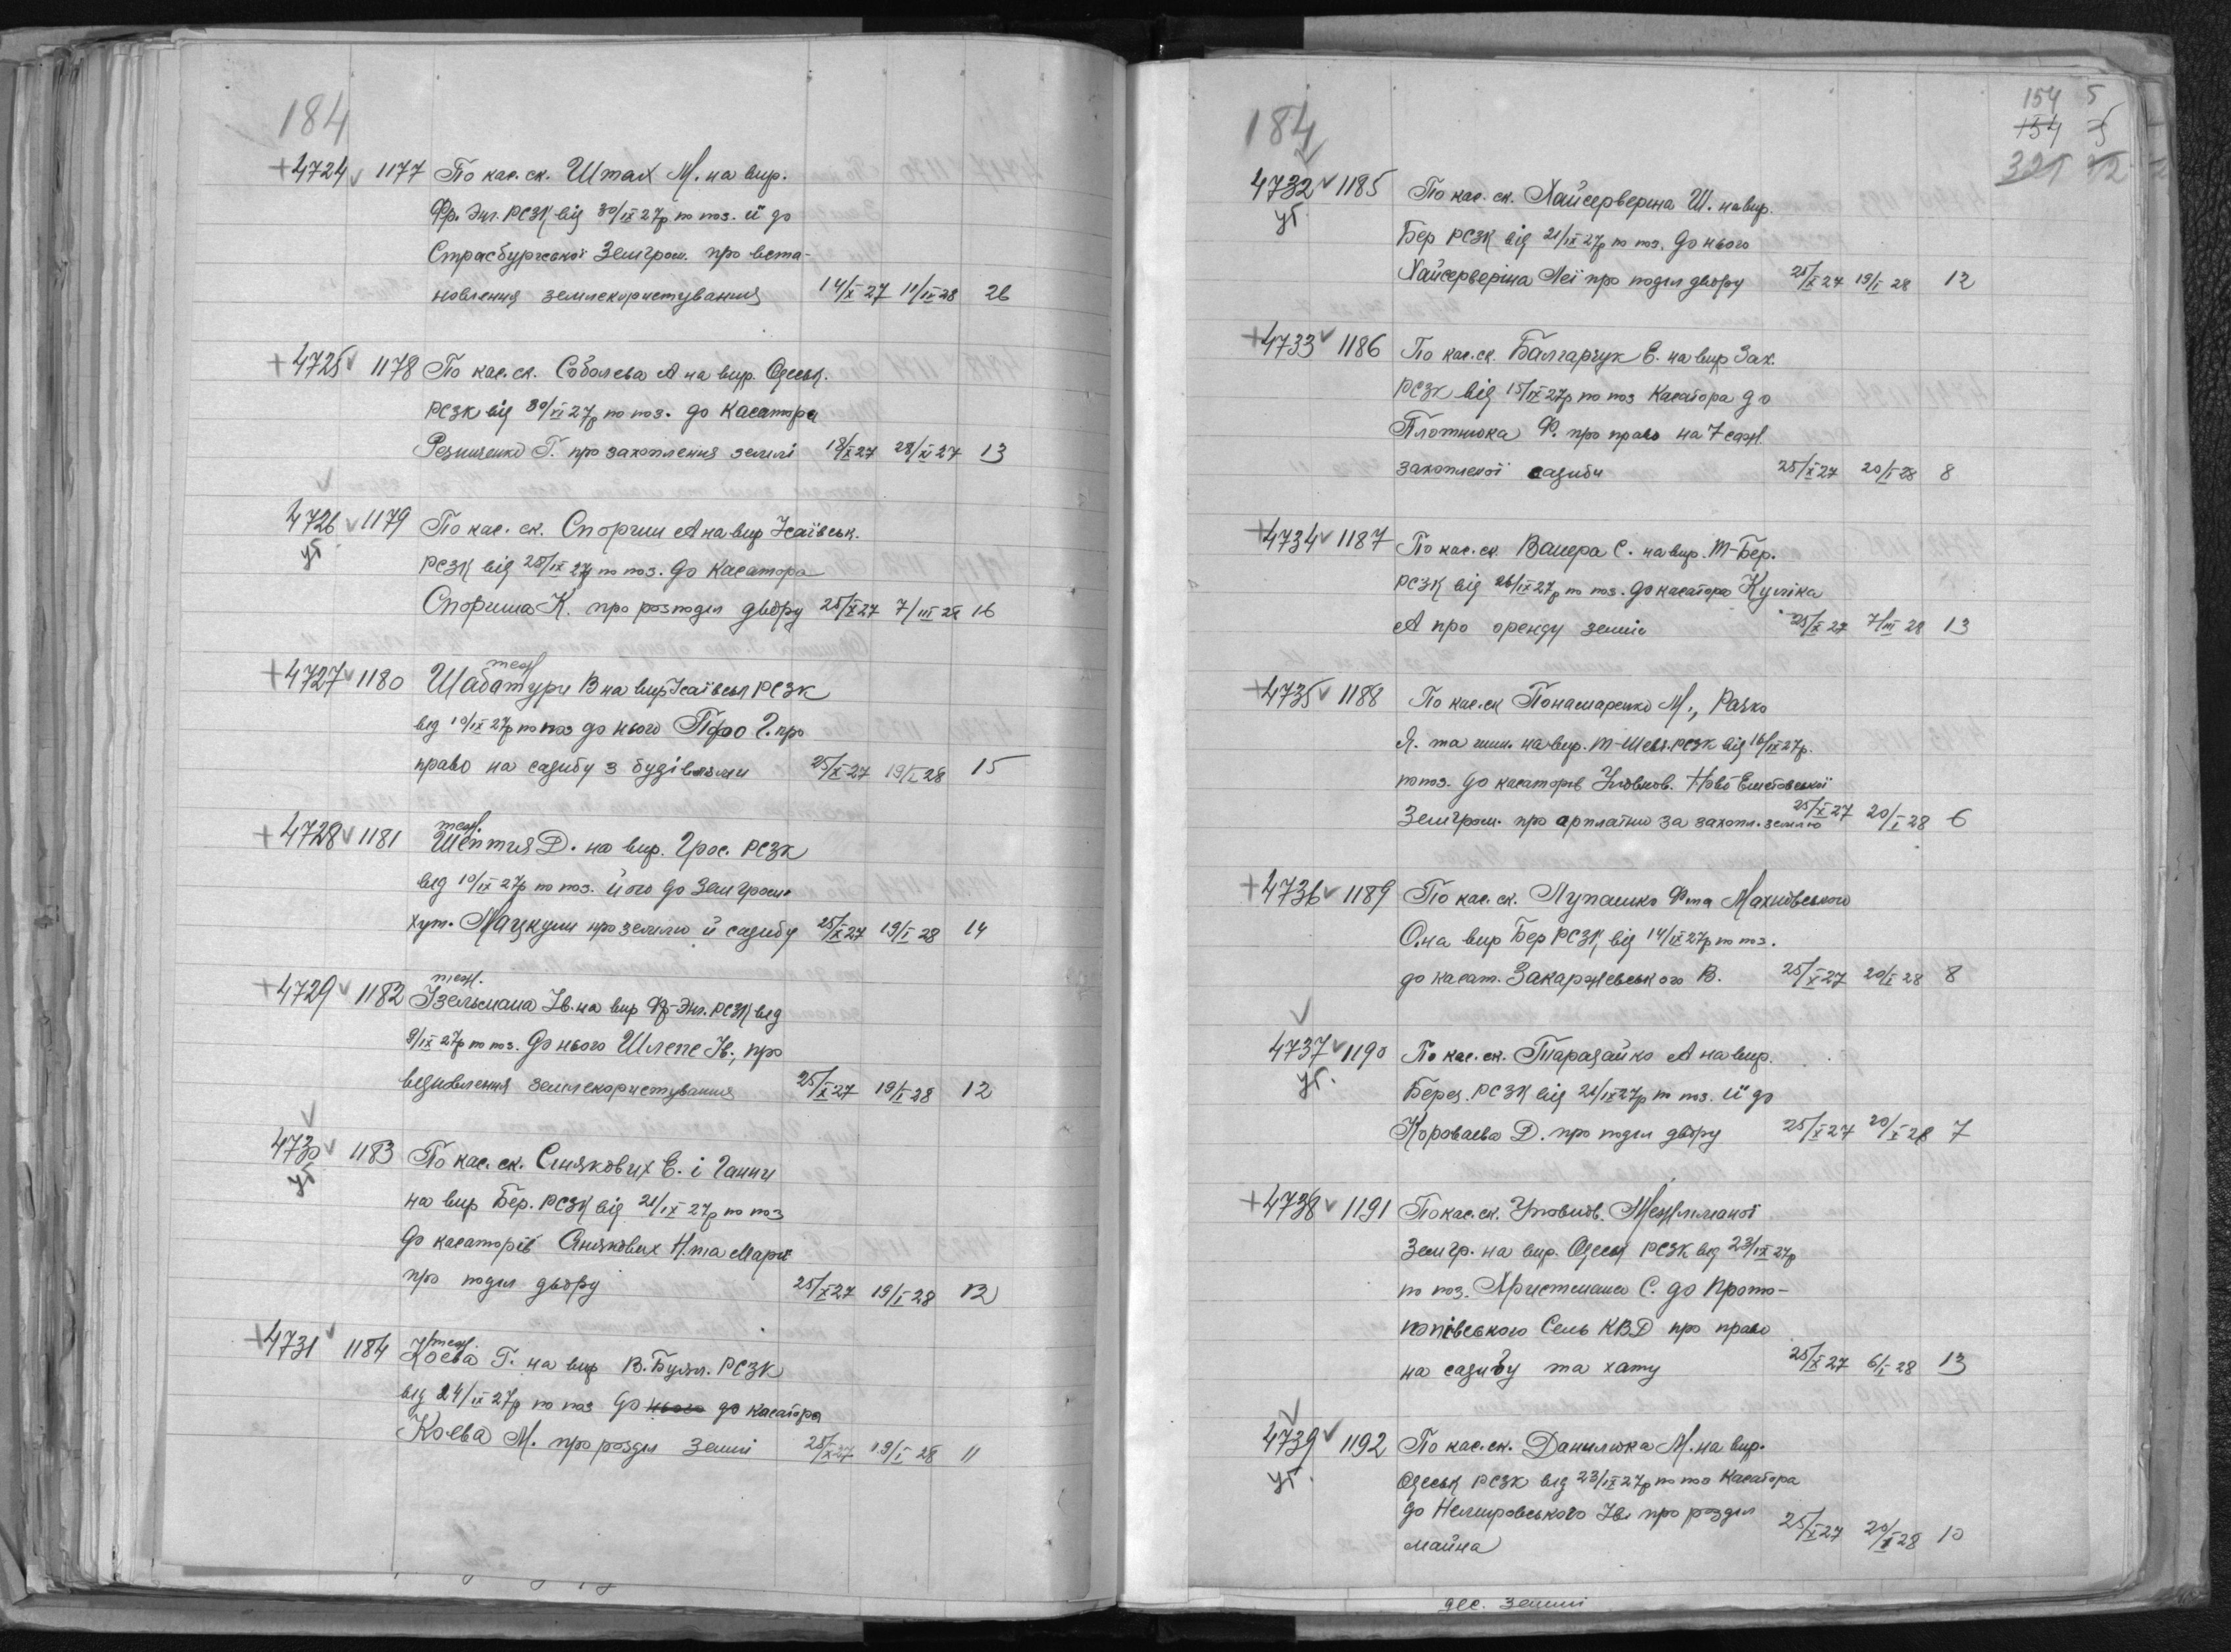 184
+4724 ✓ 1177 По кас. ск. Штах М. на вир.
Фр. Энг. РСЗК від 30/IX 27р. по поз. її до
Страсбургської Земгром. про вста-
новлення землекористування 14/X 27 11/IV 28 26
+4725 ✓ 1178 По кас. ск. Соболєва А на вир. Одеськ.
РСЗК від 30/VI 27р по поз. до касатора
Резниченко Г. про захоплення землі 18/X 27 28/XI 27 13
4726 ✓ 1179 По кас. ск. Спориш А на вир Ісаївськ.
уг. РСЗК від 28/IX 27р по поз. до касатора
Спориша К. про розподіл двору 25/X 27 7/III 28 16
+4727 ✓ 1180 теж Шабатури В на вир Ісаївськ РСЗК
від 10/IX 27р по поз до нього Г. про
право на садибу з будівлями 25/X 27 19/I 28 15
+4728 ✓ 1181 теж. Шептия Д. на вир. Грос. РСЗК
від 10/IX 27р по поз. його до Земгром.
хут. Мацкули про землю й садибу 25/X 27 19/I 28 14
+4729 ✓ 1182 теж. Ізельмана Ів. на вир Фр-Энг. РСЗК від
9/IX 27р по поз. до нього Шлепе Ів., про
відновлення землекористування 25/X 27 19/I 28 12
4730 ✓ 1183 По кас. ск. Синякових Е. і Ганни
уг. на вир Бер. РСЗК від 21/IX 27р по поз
до касаторів Синякових Н. та Марії
про поділ двору 25/X 27 19/I 28 12
+4731 ✓ 1184 теж. Коєва Г. на вир В. Буял. РСЗК
від 24/IX 27р по поз до нього до касатора
Коєва М. про розділ землі 25/X 27 19/I 28 11
184
154 5
154 5
321 12
4732 ✓ 1185 По кас. ск. Хайсерверина Ш. на вир.
уг. Бер РСЗК від 21/IX 27р по поз. до нього
Хайсерверіна Леї про поділ двору 25/X 27 19/I 28 12
+4733 ✓ 1186 По кас. ск. Балгарчук Е. на вир Зах.
РСЗК від 15/IX 27р по поз касатора до
Плотнюка Ф. про право на 7 саж.
захопленої садиби 25/X 27 20/I 28 8
+4734 ✓ 1187 По кас. ск Вацера С. на вир. Т-Бер.
РСЗК від 26/IX 27р по поз. до касатора Куліка
А про оренду землі 25/X 27 7/III 28 13
+4735 ✓ 1188 По кас. ск Понамаренко М., Рачко
Я. та инш. на вир. Т-Шевч. РСЗК від 16/IX 27р.
по поз. до касаторів Уповнов. Ново
Земгром. про арплатню за захопл. землю 25/X 27 20/I 28 6
+4736 ✓ 1189 По кас. ск. Лупашко Ф та Махновського
О. на вир Бер РСЗК від 14/IX 27р по поз.
до касат. Закаржевського В. 25/X 27 20/I 28 8
4737 ✓ 1190 По кас. ск. Тарадайко А на вир.
уг. Берез. РСЗК від 21/IX 27р по поз. її до
Короваєва Д. про поділ двору 25/X 27 20/I 28 7
+4738 ✓ 1191 По кас. ск. Уповнов.
Земгр. на вир. Одеськ РСЗК від 23/IX 27р
по поз. Христмана С. до Прото-
попівського Сель КВД про право
на садибу та хату 25/X 27 6/I 28 13
4739 ✓ 1192 По кас. ск. Данилюка М. на вир.
уг. Одеськ РСЗК від 23/IX 27р по поз касатора
до Немировського Ів про розділ
майна 25/X 27 20/I 28 10
дес. землі